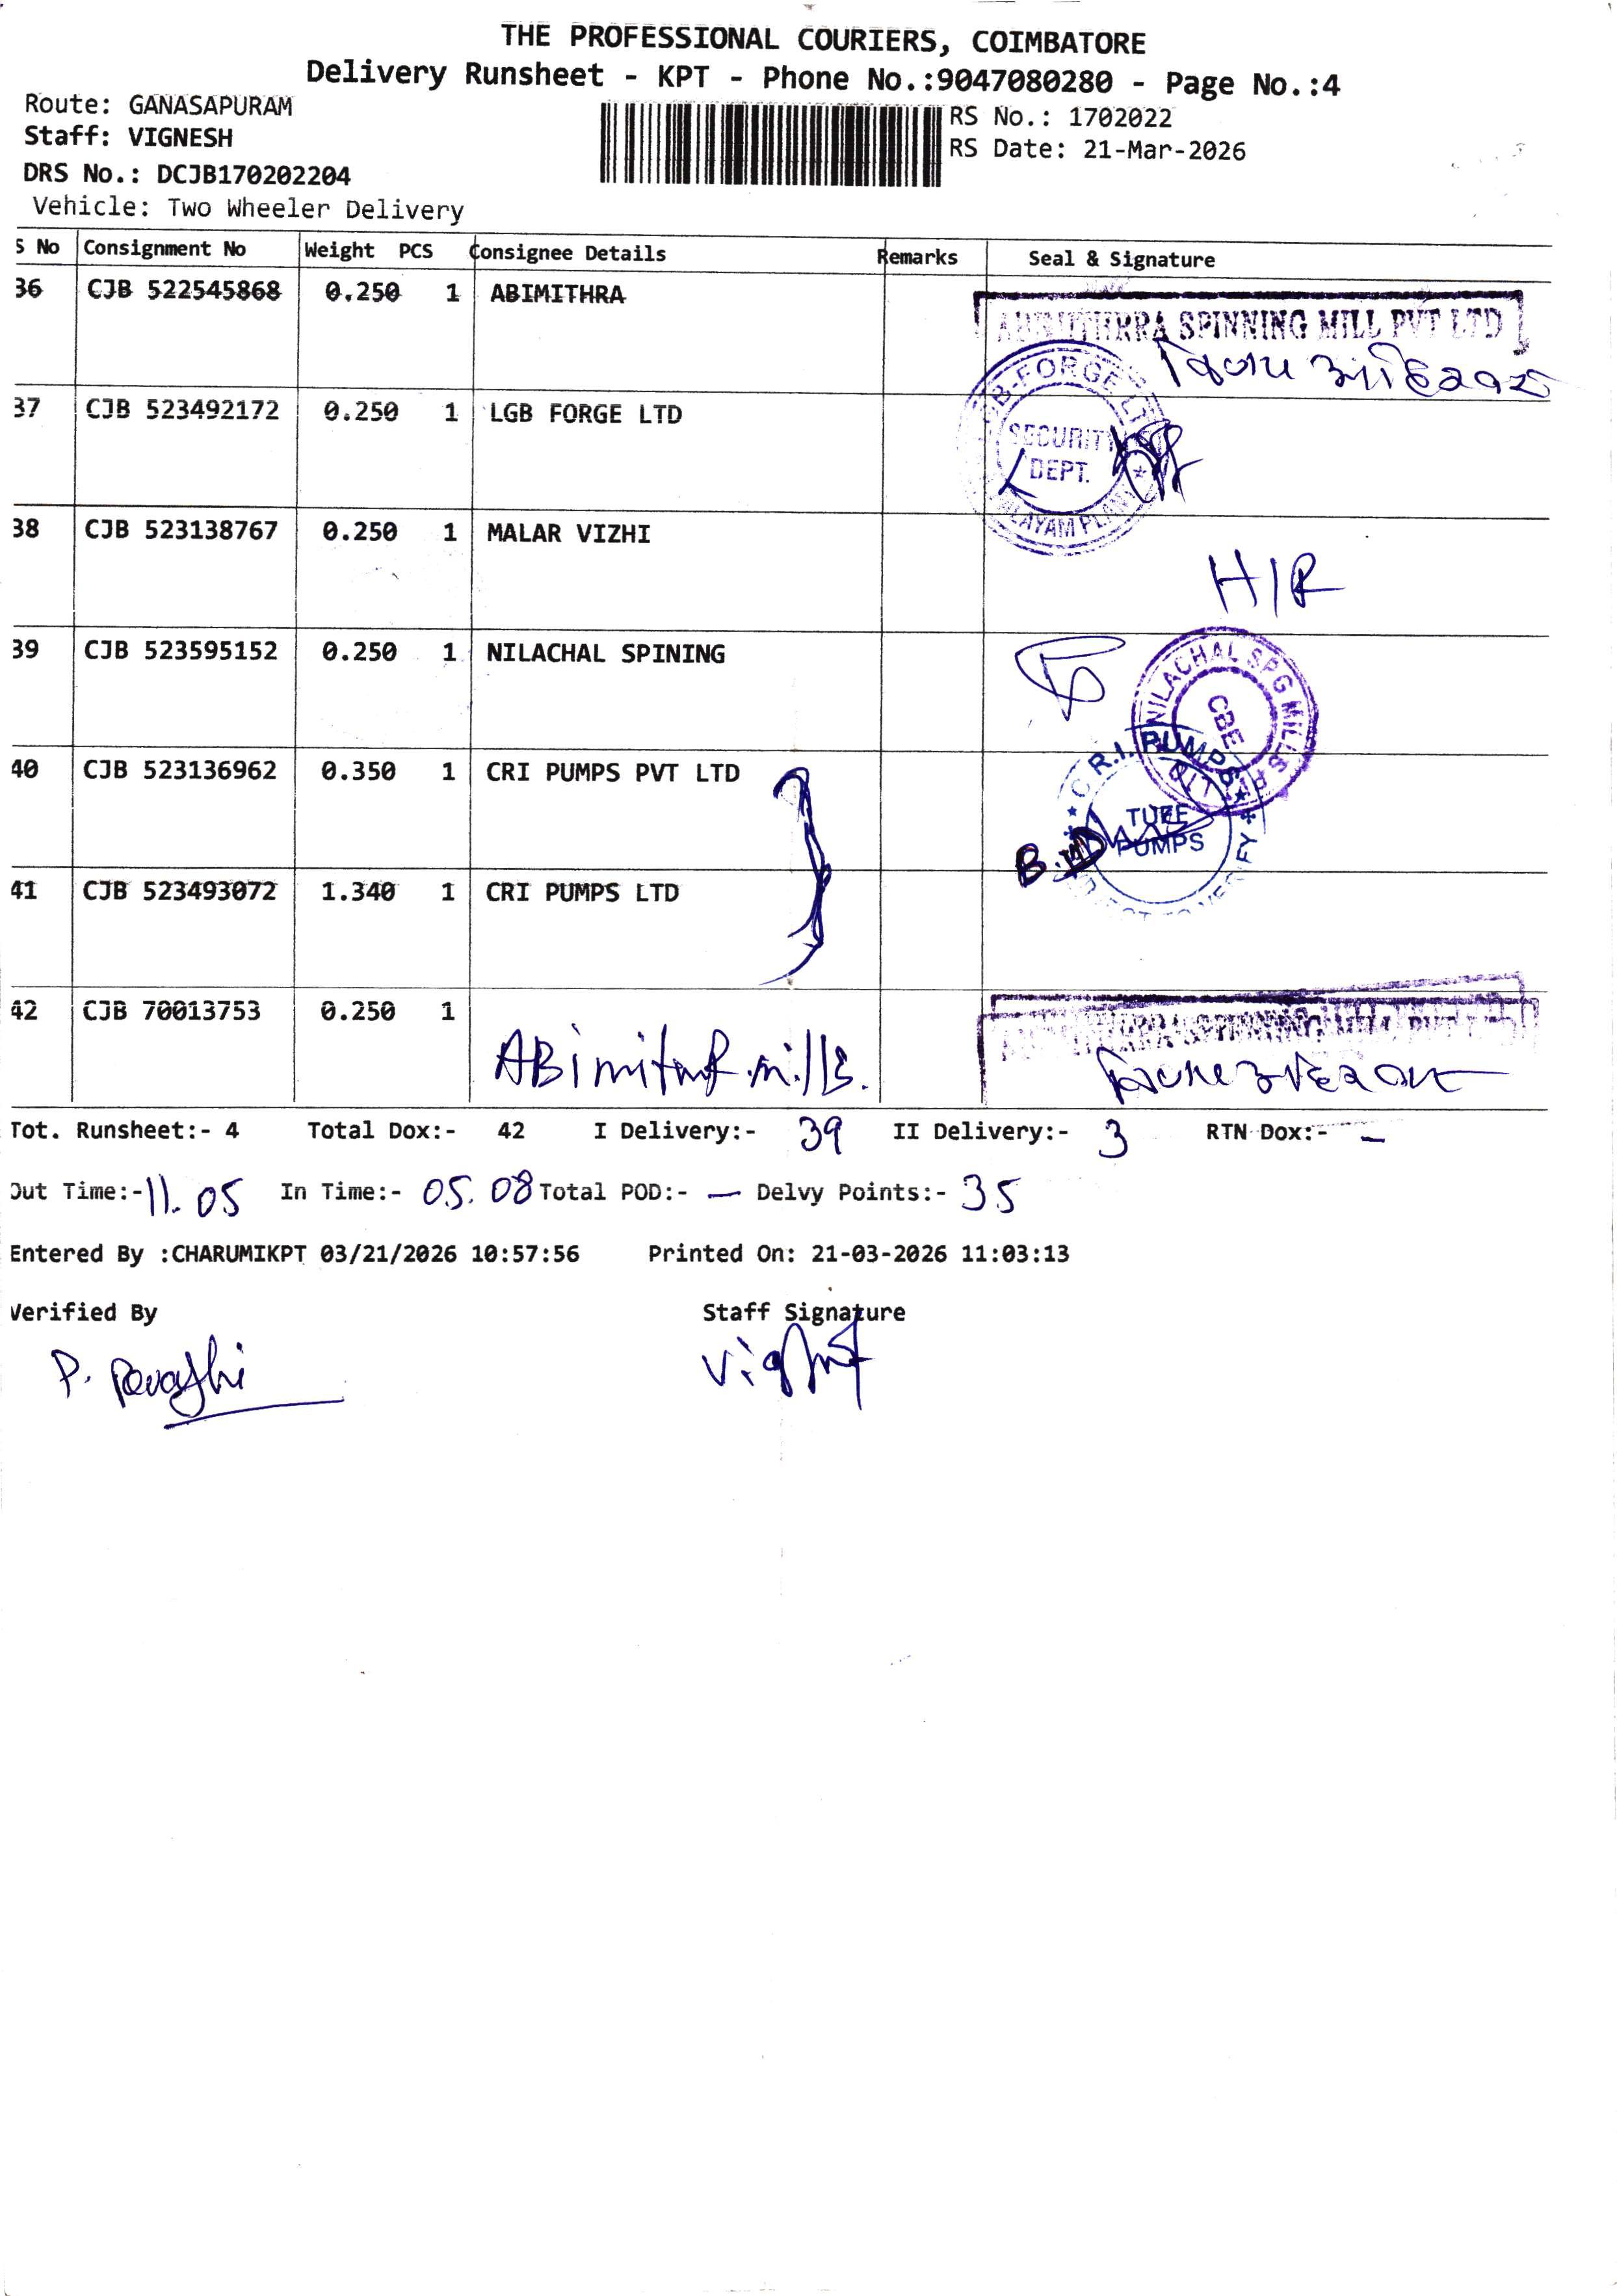 THE PROFESSIONAL COURIERS, COIMBATORE
Delivery Runsheet - KPT - Phone No.:9047080280 - Page No.:4
Route: GANASAPURAM
RS No.: 1702022
Staff: VIGNESH
RS Date: 21-Mar-2026
DRS No.: DCJB170202204
Vehicle: Two Wheeler Delivery
S No Consignment No Weight PCS Consignee Details Remarks Seal & Signature
36 CJB 522545868 0.250 1 ABIMITHRA
SPINNING MILL PVT LTD
37 CJB 523492172 0.250 1 LGB FORGE LTD
SECURITY
DEPT.
38 CJB 523138767 0.250 1 MALAR VIZHI
H/R
39 CJB 523595152 0.250 1 NILACHAL SPINING
NILACHAL SPG MILLS P LTD
CBE
40 CJB 523136962 0.350 1 CRI PUMPS PVT LTD
C.R.I. PUMPS
TUBE
PUMPS
41 CJB 523493072 1.340 1 CRI PUMPS LTD
42 CJB 70013753 0.250 1
Tot. Runsheet:- 4 Total Dox:- 42 I Delivery:- 39 II Delivery:- 3 RTN Dox:- —
Out Time:- 11.05 In Time:- 05.08 Total POD:- — Delvy Points:- 35
Entered By :CHARUMIKPT 03/21/2026 10:57:56 Printed On: 21-03-2026 11:03:13
Verified By Staff Signature